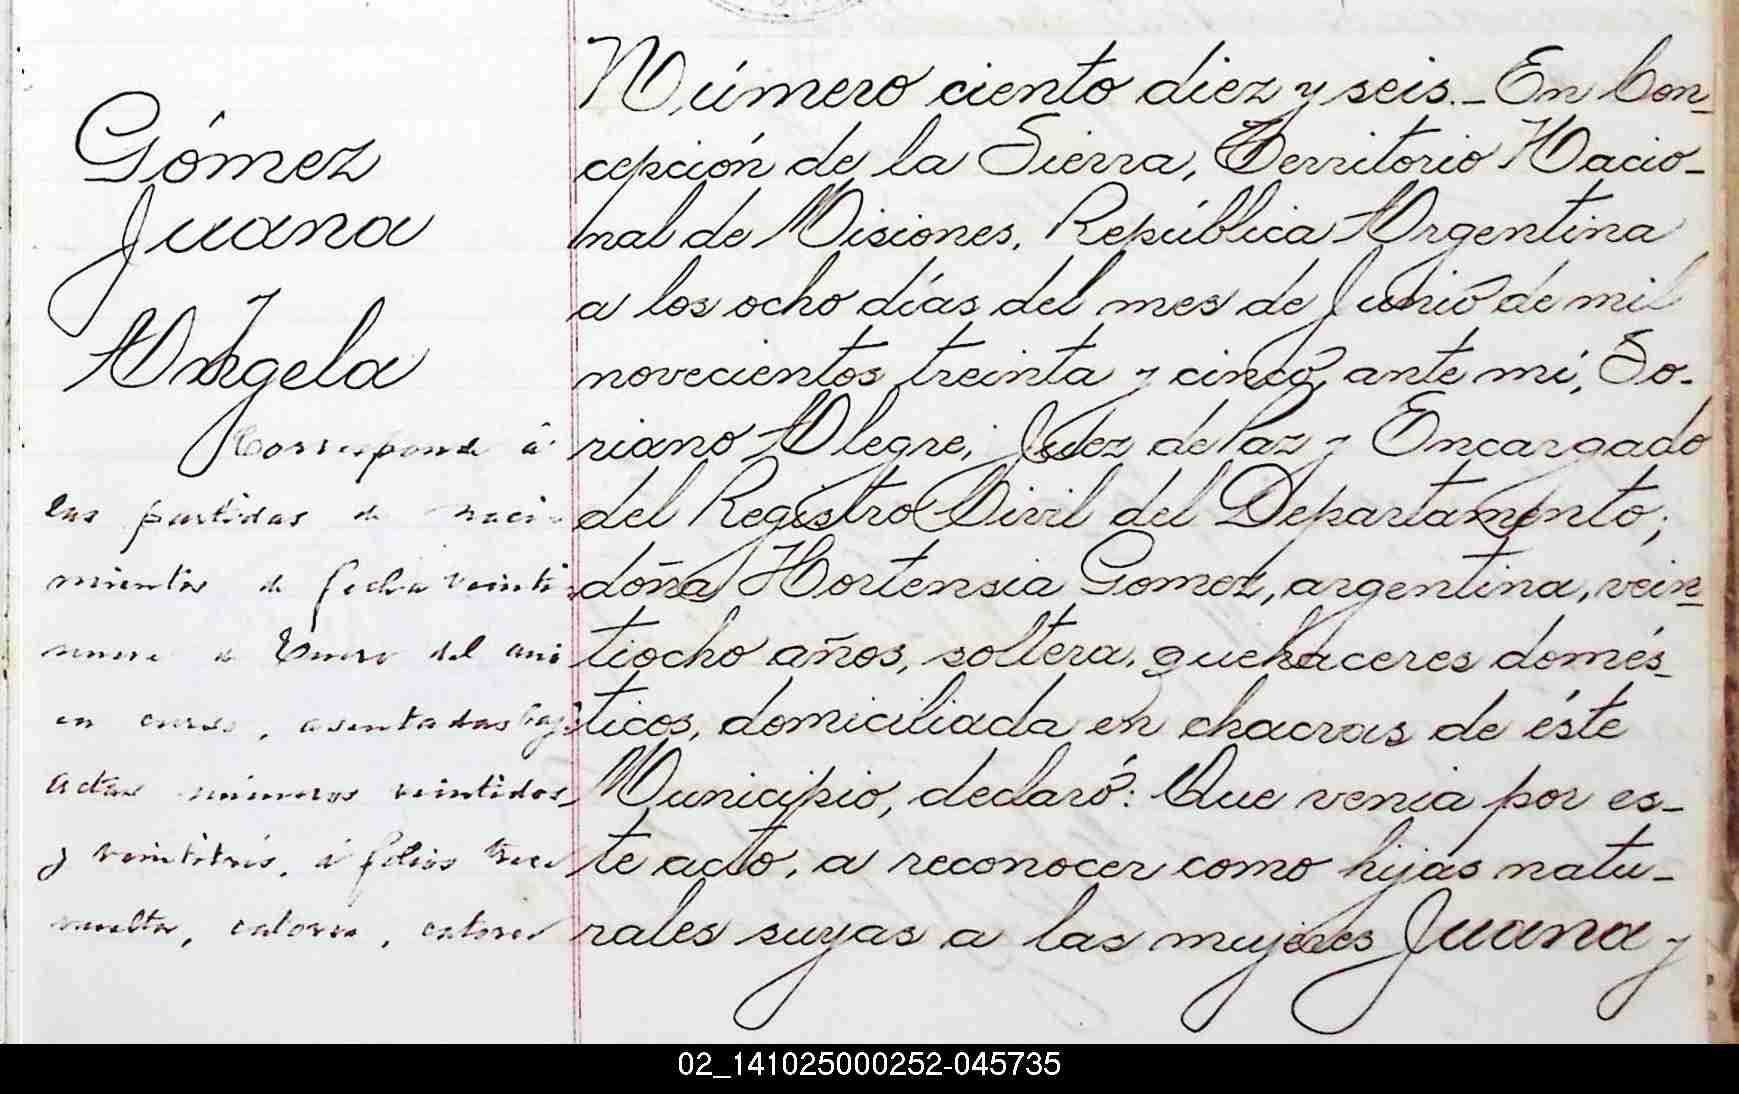 Gómez
Juana
y
Angela
Corresponde á
las partidas de naci-
mientos de fecha veinti
nueve de Enero del año
en curso, asentadas bajo
actas números veintidos
y veintitrés, á folios trece
vuelta, catorce, catorce
Número ciento diez y seis._ En Con-
cepción de la Sierra, Territorio Nacio-
nal de Misiones, República Argentina
a los ocho días del mes de Junio de mil
novecientos treinta y cinco, ante mí, So-
riano Alegre, Juez de Paz y Encargado
del Registro Civil del Departamento;
doña Hortensia Gomez, argentina, vein-
tiocho años, soltera, quehaceres domés-
ticos, domiciliada en chacras de éste
Municipio, declaró: Que venia por es-
te acto, a reconocer como hijas natu-
rales suyas a las mujeres Juana y
02_141025000252-045735